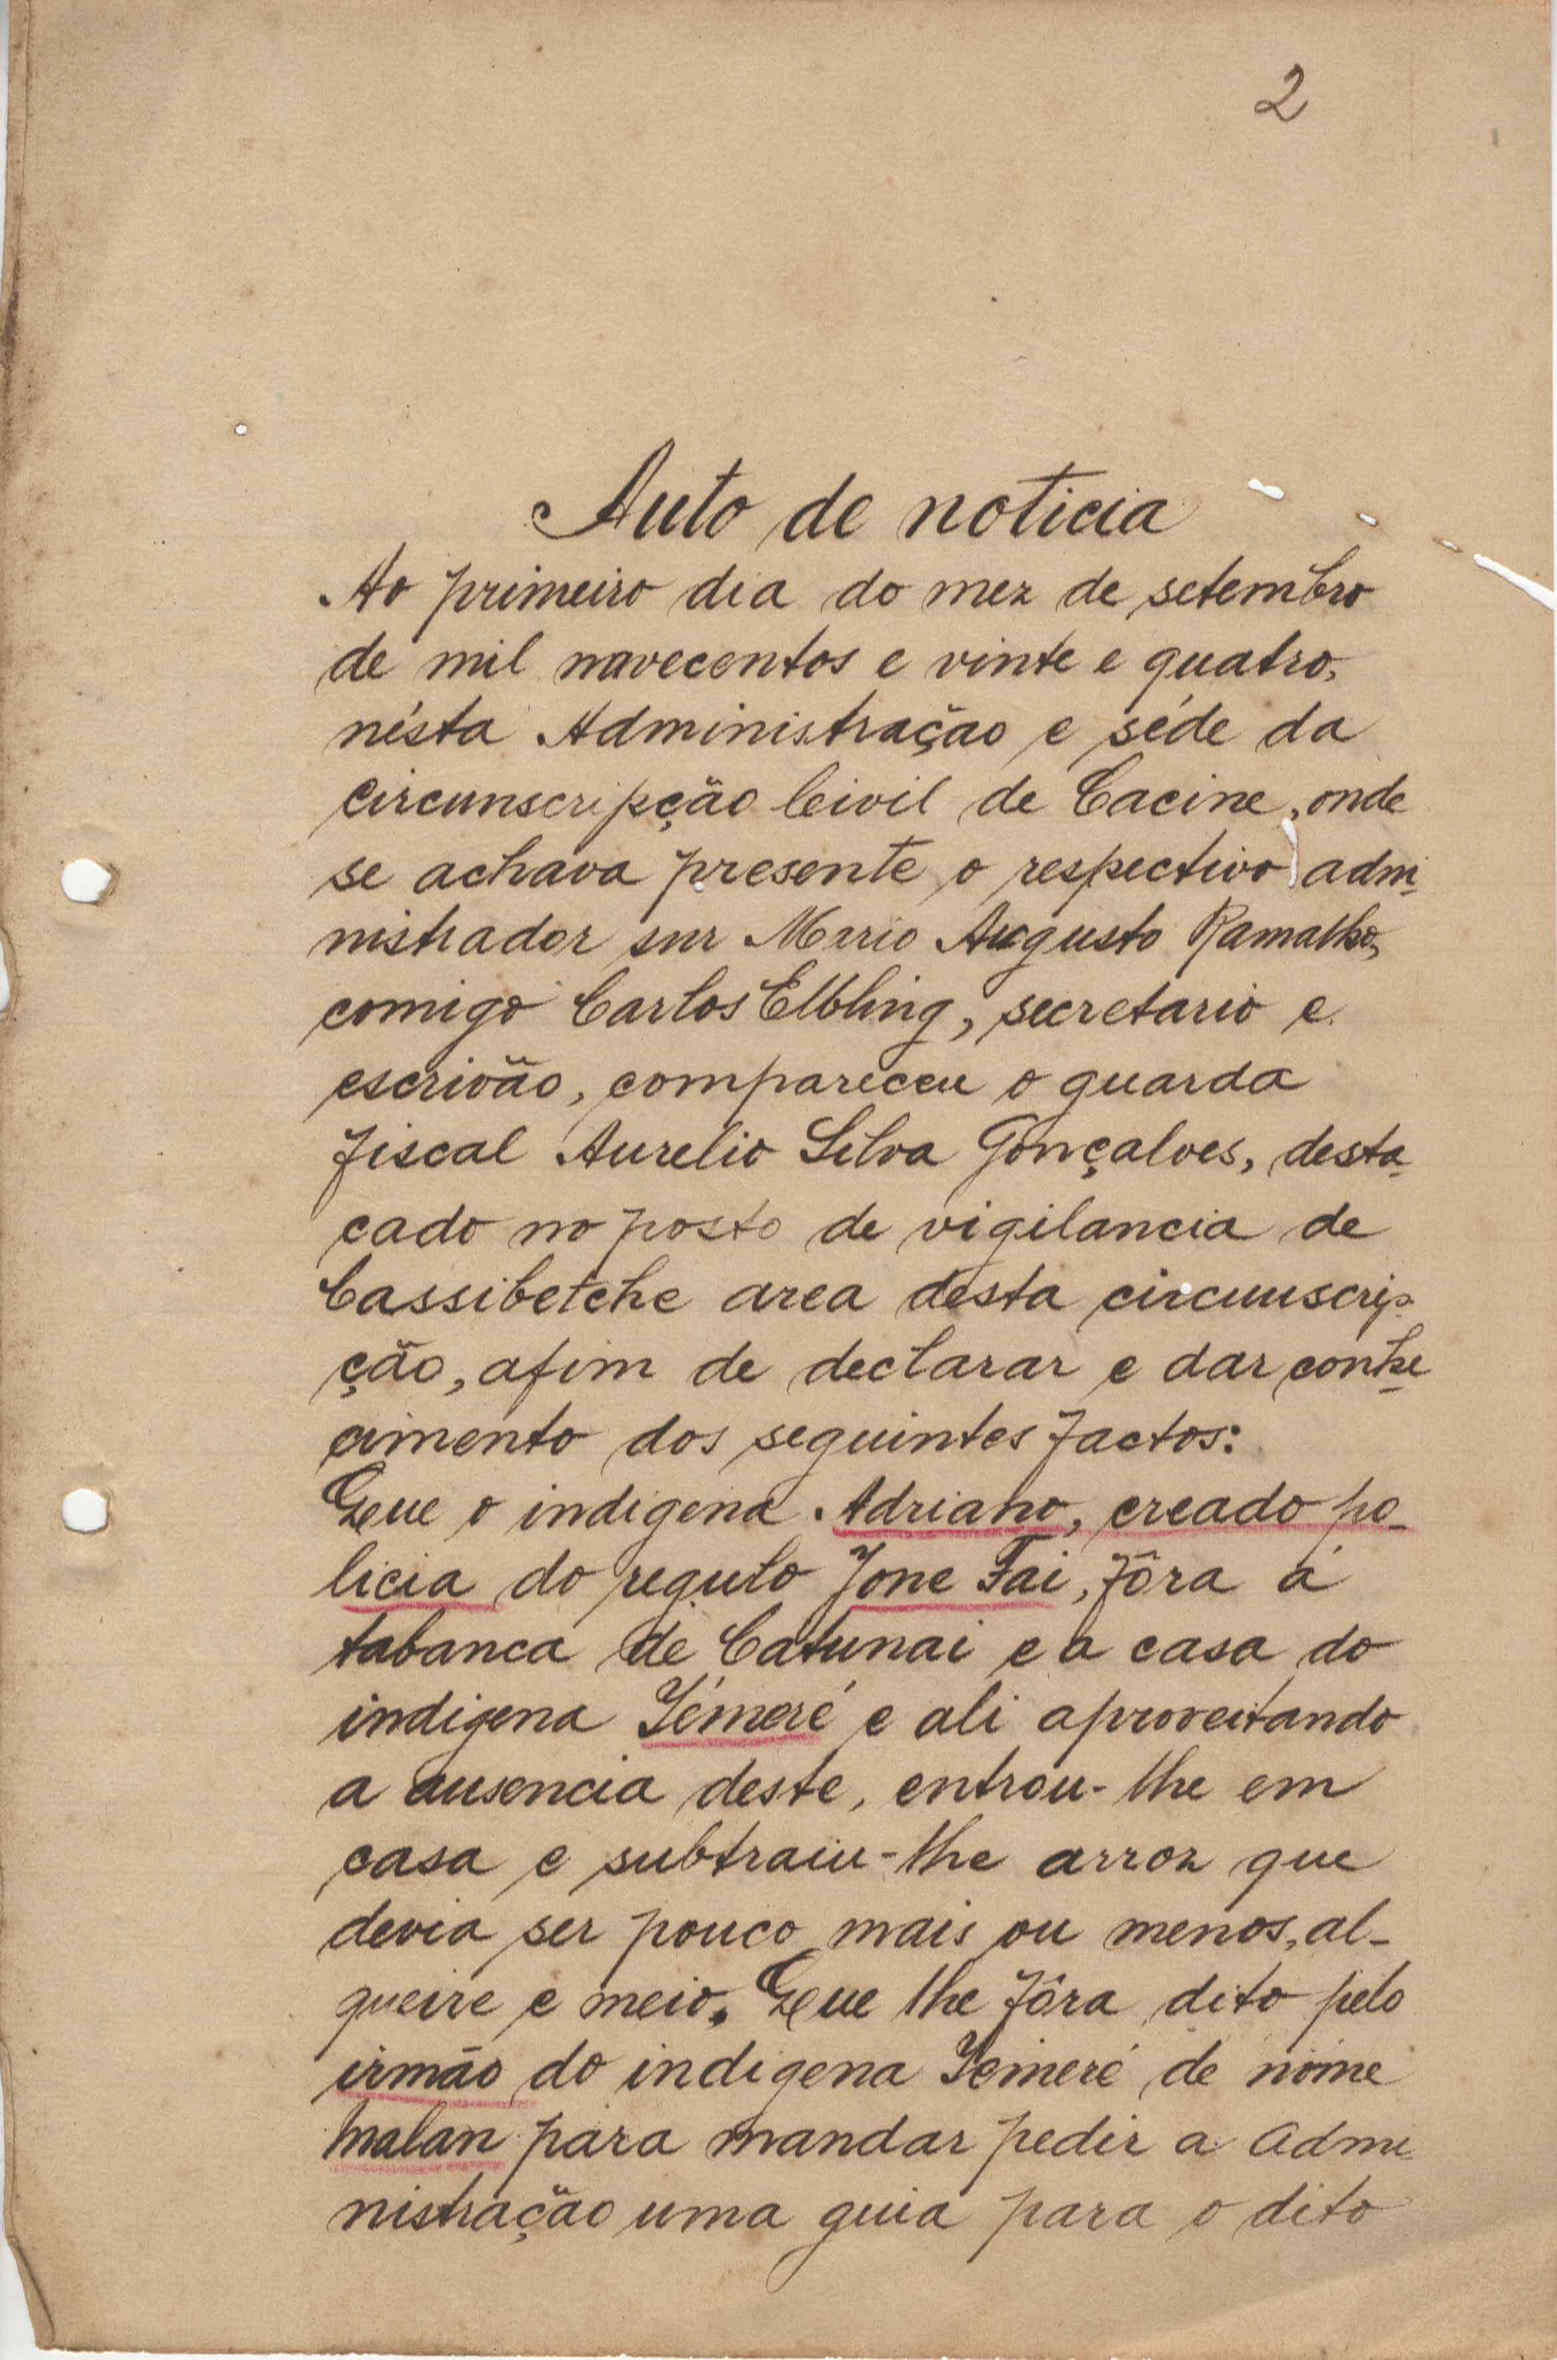 2
Auto de noticia
Ao primeiro dia do mez de setembro
de mil novecentos e vinte e quatro,
nésta Administração e séde da
circunscripção Civil de Cacine, onde
se achava presente o respectivo admi-
nistrador snr Mario Augusto Ramalho,
comigo Carlos Elbling, secretario e
escrivão, compareceu o guarda
fiscal Aurelio Silva Gonçalves, desta-
cado no posto de vigilancia de
Cassibetche area desta circunscrip-
ção, afim de declarar e dar conhe-
cimento dos seguintes factos:
Que o indigena Adriano, creado po-
licia do regulo Jone Fai, fôra á
tabanca de Catunai e a casa do
indigena Iémeré e ali aproveitando
a ausencia deste, entrou-lhe em
casa e subtraiu-lhe arroz que
devia ser pouco mais ou menos, al-
queire e meio. Que lhe fôra dito pelo
irmão do indigena Iemeré de nome
Malan para mandar pedir a Admi-
nistração uma guia para o dito